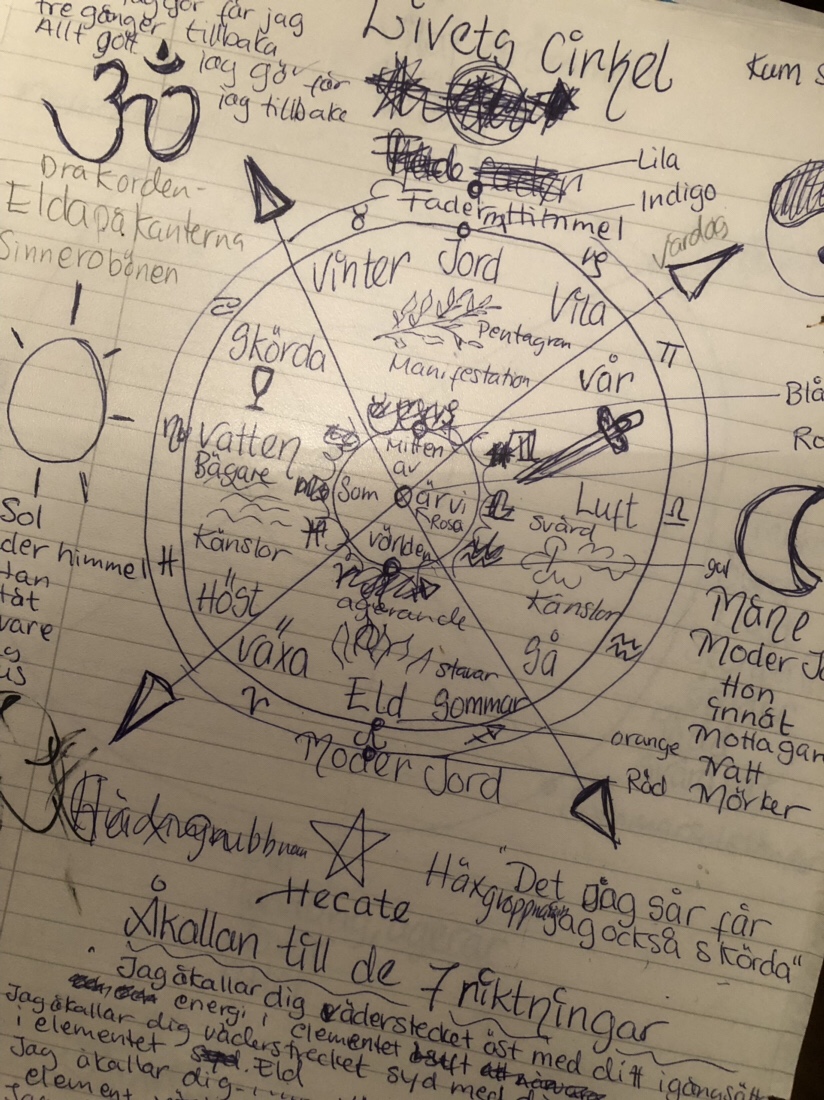 får jag
tre gånger tillbaka
Allt gott
jag gör för
jag tillbake
Livets Cirkel
Kum
ॐ
Drakorden-
Elda på kanterna
Lila
Indigo
Fader Himmel
Vardag
Jord
Vinter
Vila
♉
♑
♋
♊
Skörda
Pentagram
Manifestation
vår
Blå
♍
Vatten
Bägare
Mitten
av
Som
är vi
Rosa
världen
Luft
Svärd
♎
känslor
Känslor
♓
gul
Höst
agerande
växa
stavar
gå
♒
♈
Eld
Sommar
♌
♐
orange
Moder Jord
Röd
Sol
der himmel
tan
tåt
vare
Måne
Moder Jo
Hon
innåt
Mottagan
Natt
Mörker
Hecate
Häxgropp
"Det jag sår får
jag också skörda"
Åkallan till de 7 riktningar
Jag åkallar dig väderstecket öst med ditt igångsätt
energi i elementet luft
Jag åkallar dig väderstrecket syd med di
i elementet Eld
Jag åkallar dig
element